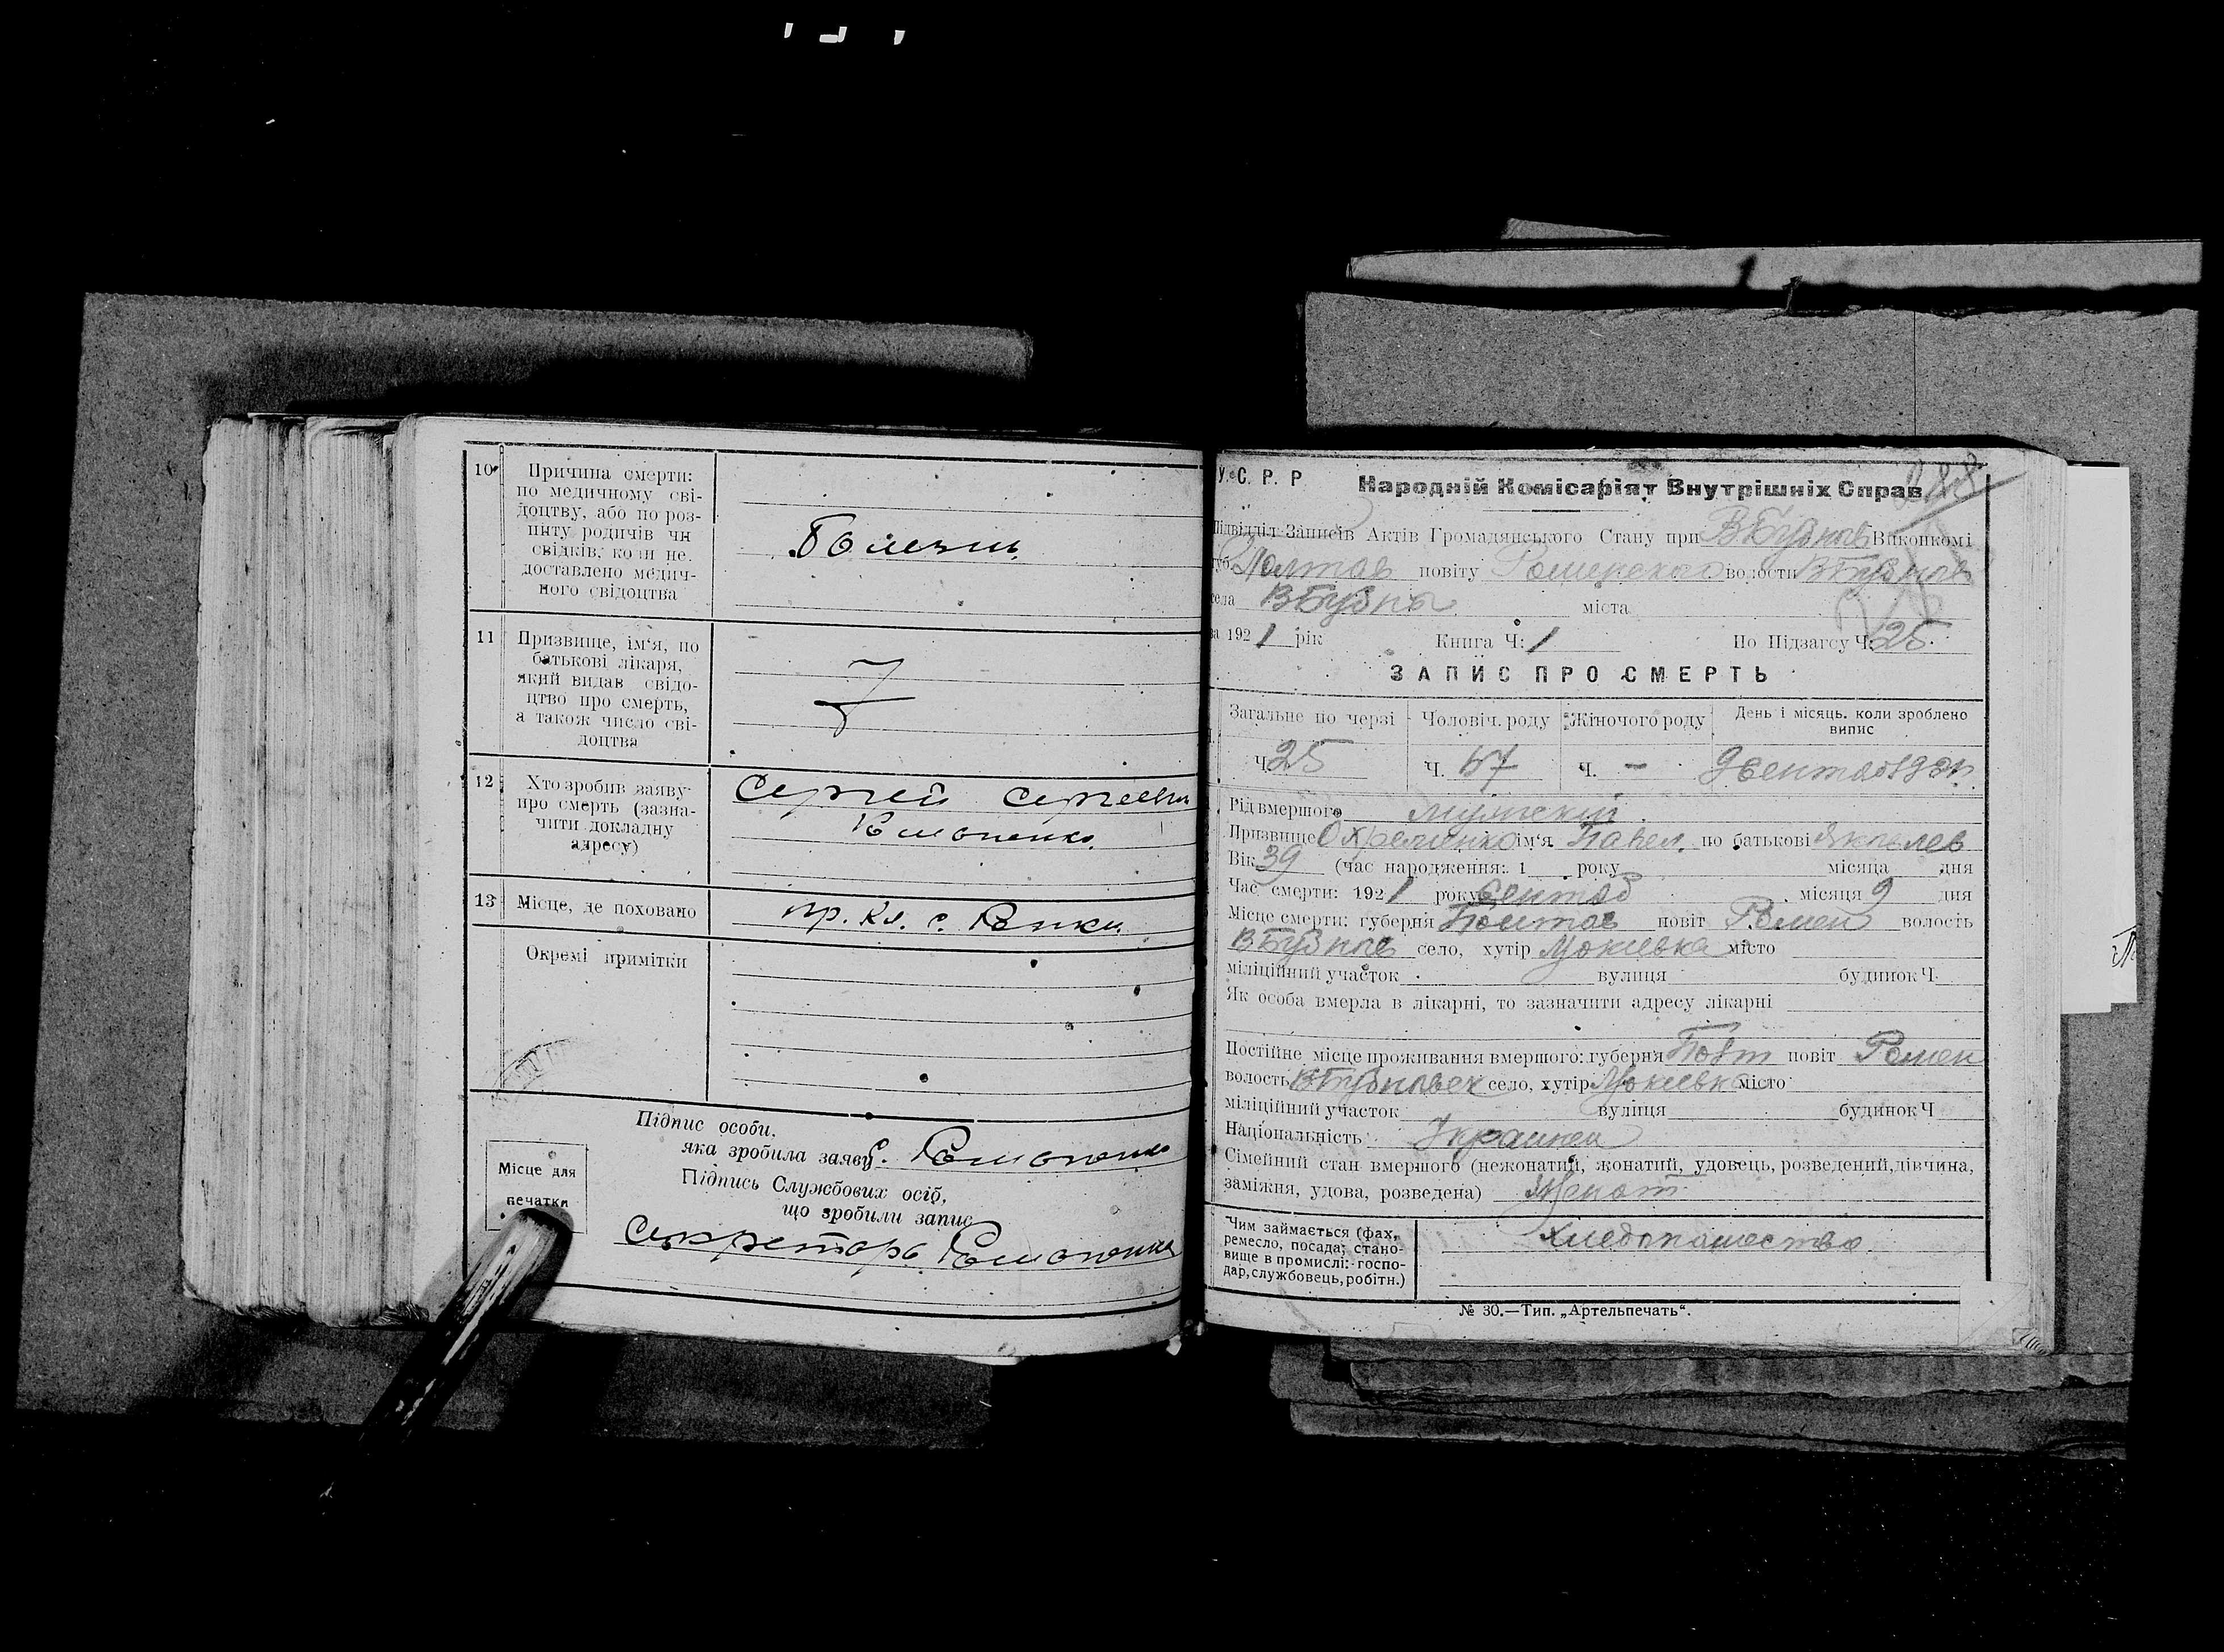 10 Причина смерти:
по медичному сві-
доцтву, або по роз-
питу родичів чи
свідків, коли не
доставлено медич-
ного свідоцтва
Болезнь
11 Призвище, ім'я, по
батькові лікаря,
який видав свідо-
цтво про смерть,
а також число сві-
доцтва
12 Хто зробив заяву
про смерть (зазна-
чити докладну
адресу)
Сергей Сергеевич
13 Місце, де поховано
пр. кл. с.
Окремі примітки
Підпис особи,
яка зробила заяву
Підпись Службових осіб,
що зробили запис
Секретарь
Місце для
печатки
У. С. Р. Р
Народній Комісаріят Внутрішніх Справ
Підвідділ Записів Актів Громадянського Стану при В Бубнов Виконкомі
губ. Полтав повіту Роменского волости В Бубнов
села В Бубны міста
за 1921 рік Книга Ч: 1 По Підзагсу Ч: 25
ЗАПИС ПРО СМЕРТЬ
Загальне по черзі Чоловіч. роду Жіночого роду День і місяць, коли зроблено
випис
Ч. 25 Ч. Ч. – 9 сентяб
Рід вмершого мужской
Призвище Охременко ім'я Павел по батькові Яковлев
Вік 39 (час народження: 1 року місяца дня
Час смерти: 1921 року сентяб місяця 9 дня
Місце смерти: губерня Полтав повіт Ромен волость
В Бубнов село, хутір Мокиевка місто
міліційний участок вулиця будинок Ч
Як особа вмерла в лікарні, то зазначити адресу лікарні
Постійне місце проживання вмершого: губерня Полт повіт Ромен
волость село, хутір Мокиевка місто
міліційний участок вуліця будинок Ч
Національність Украинец
Сімейний стан вмершого (нежонатий, жонатий, удовець, розведений, дівчина,
заміжня, удова, розведена) Женат
Чим займається (фах,
ремесло, посада; стано-
вище в промислі: госпо-
дар, службовець, робітн.)
хлебопашество
№ 30.—Тип. „Артельпечать“.